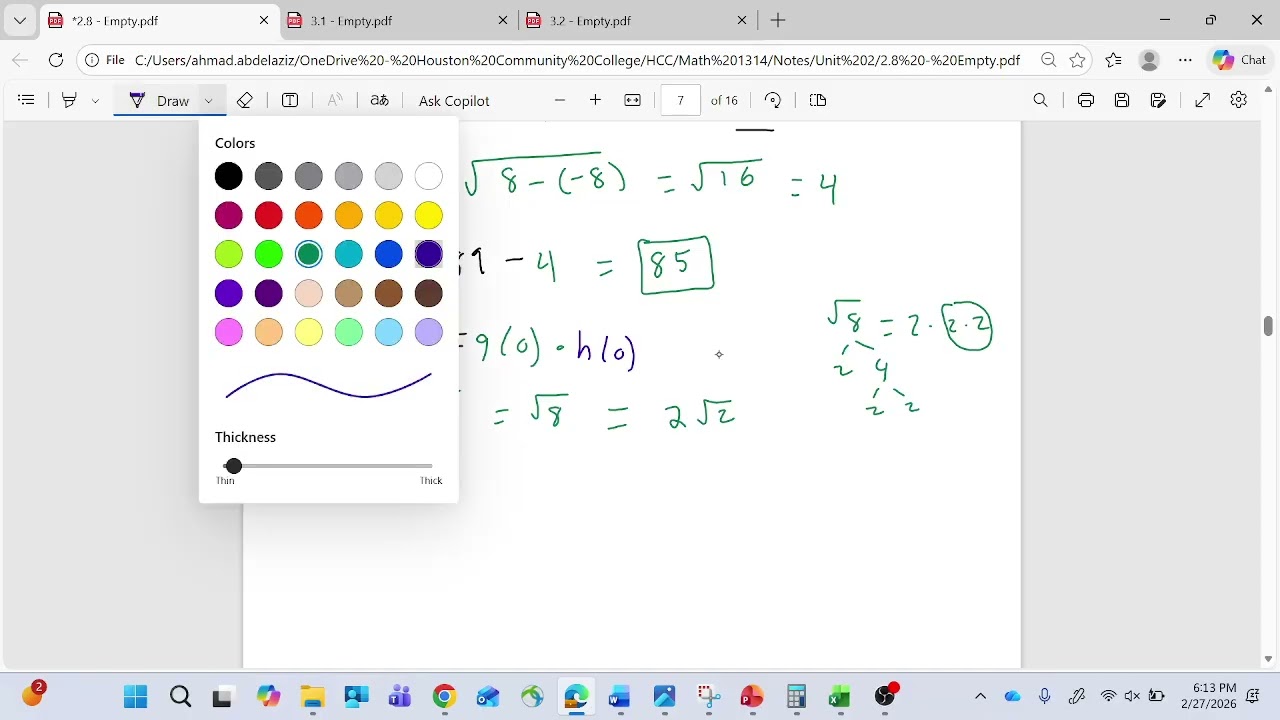 *2.8 - Empty.pdf
3.1 - Empty.pdf
3.2 - Empty.pdf
File C:/Users/ahmad.abdelaziz/OneDrive%20-%20Houston%20Community%20College/HCC/Math%201314/Notes/Unit%202/2.8%20-%20Empty.pdf
Chat
Draw
Ask Copilot
7 of 16
Colors
Thickness
Thin Thick
√8 - (-8) = √16 = 4
- 4 = 85
= g(0) · h(0)
= √8 = 2√2
√8 = 2 · 2·2
2 4
2 2
2
6:13 PM
2/27/2026